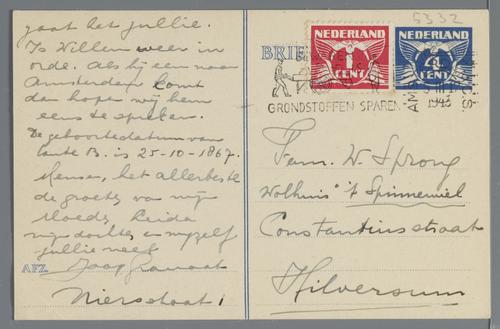 gaat het jullie.
Is Willem weer in
orde. Als hij eens naar
Amsterdam komt
dan hopen wij hem
eens te spreken.
De geboortedatum van
tante B. is 25-10-1867.
Mensen, het allerbeste
de groeten van mijn
Moeder, Leida
mijn dochter en mijzelf
jullie neef
AFZ. Jaap
Niersstraat 1
5332
BRIEF
NEDERLAND
1 CENT
NEDERLAND
4 CENT
GRONDSTOFFEN SPAREN
AM
1943
Fam. W. Sprong
Wolhuis "'t Spinnewiel
Constantijnstraat
Hilversum